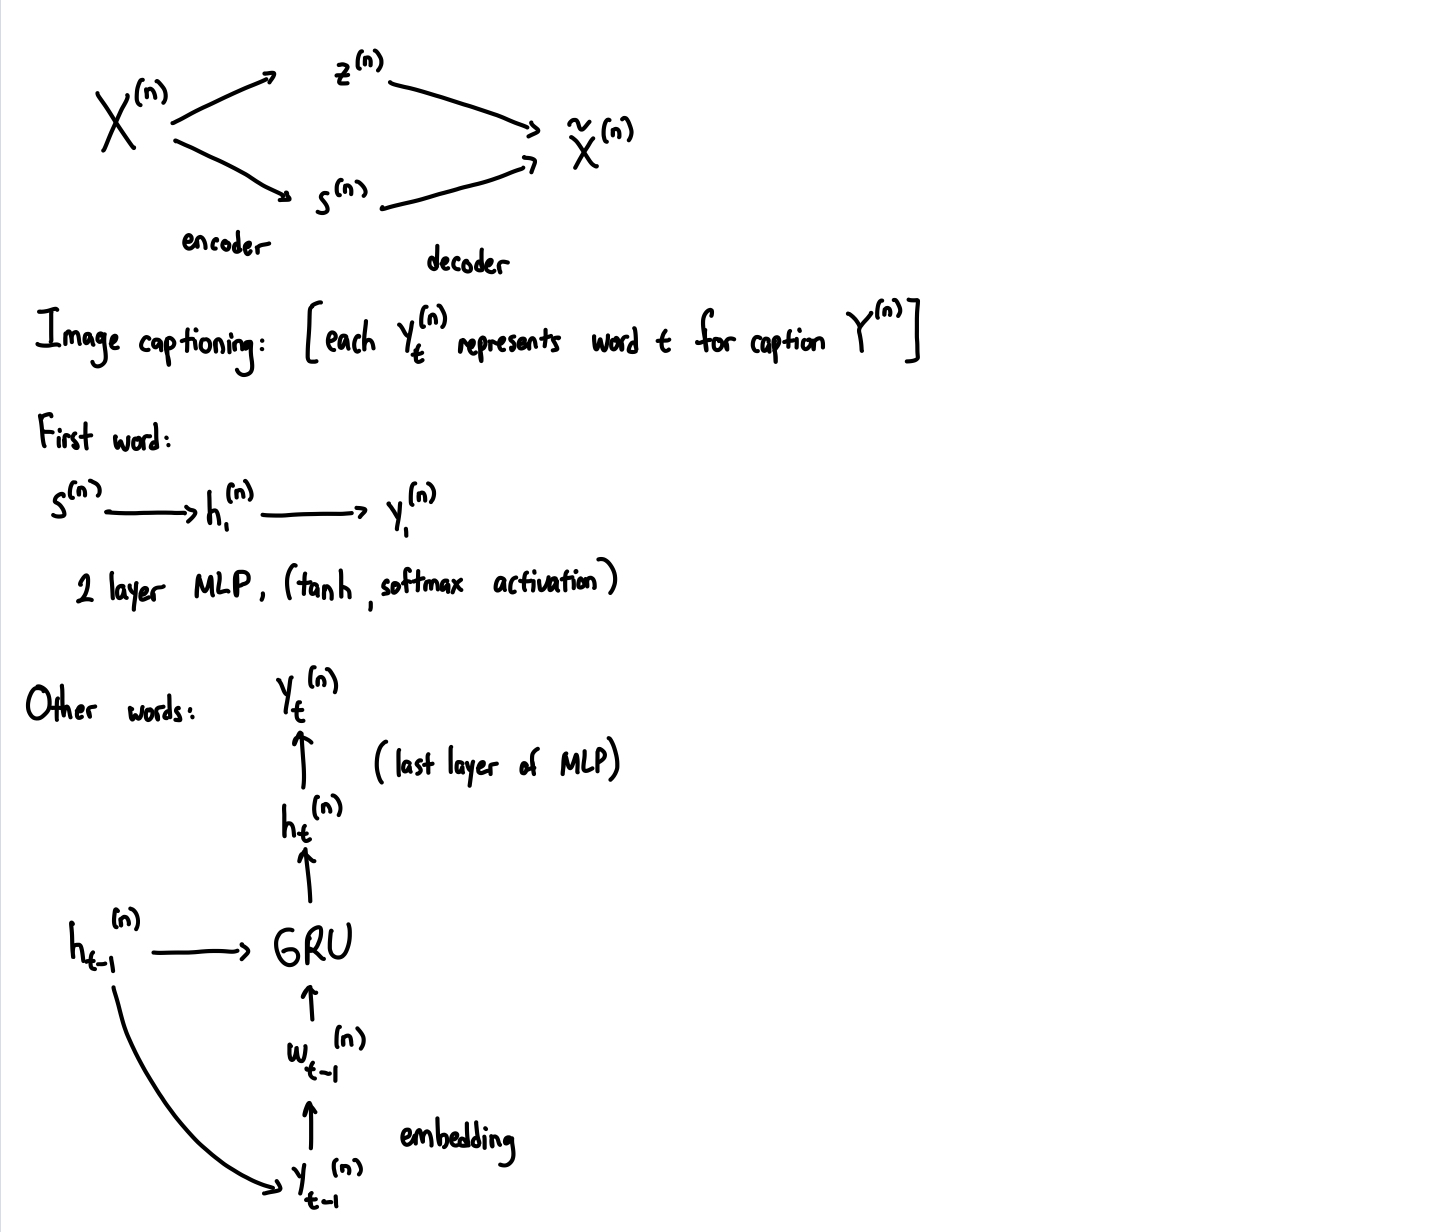 z^(n)
X^(n)
x̃^(n)
s^(n)
encoder
decoder
Image captioning: [each y_t^(n) represents word t for caption Y^(n)]
First word:
s^(n) → h_1^(n) → y_1^(n)
2 layer MLP, (tanh, softmax activation)
Other words:
y_t^(n)
(last layer of MLP)
h_t^(n)
h_t-1^(n) → GRU
w_t-1^(n)
embedding
y_t-1^(n)